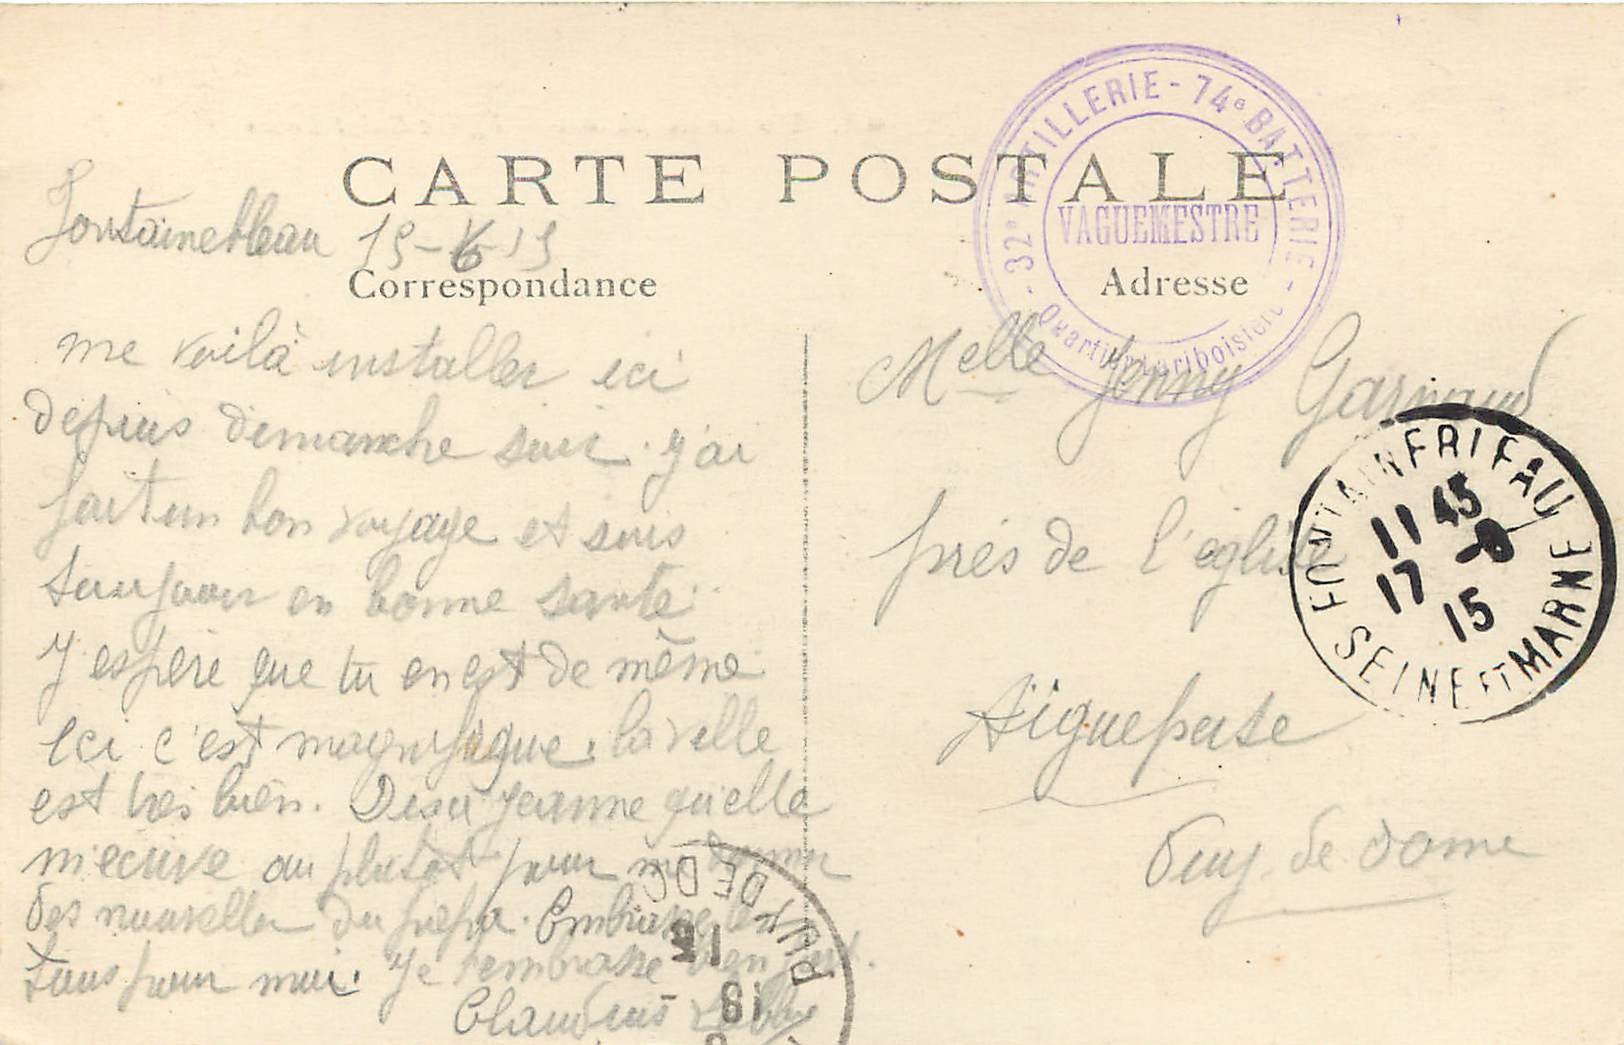 CARTE POSTALE
32e ARTILLERIE - 74e BATTERIE -
VAGUEMESTRE
Quartier Lariboisière
Fontainebleau 15-6-15
Correspondance
Adresse
me voilà installer ici
depuis dimanche soir. J'ai
fait un bon voyage et suis
toujours en bonne santé
J'espère que tu en est de même
Ici c'est magnifique. la ville
est très bien. Dis à Jeanne qu'elle
m'écrive au plutôt pour me donner
des nouvelles du pépa. Embrasse les
tous pour moi. Je t'embrasse bien fort.
Claudius
Melle Jenny Garnaud
près de l'église
Aigueperse
Puy de dome
FONTAINEBLEAU
11 45
17 -6
15
SEINE ET MARNE
PUY DE DO
15
18 -